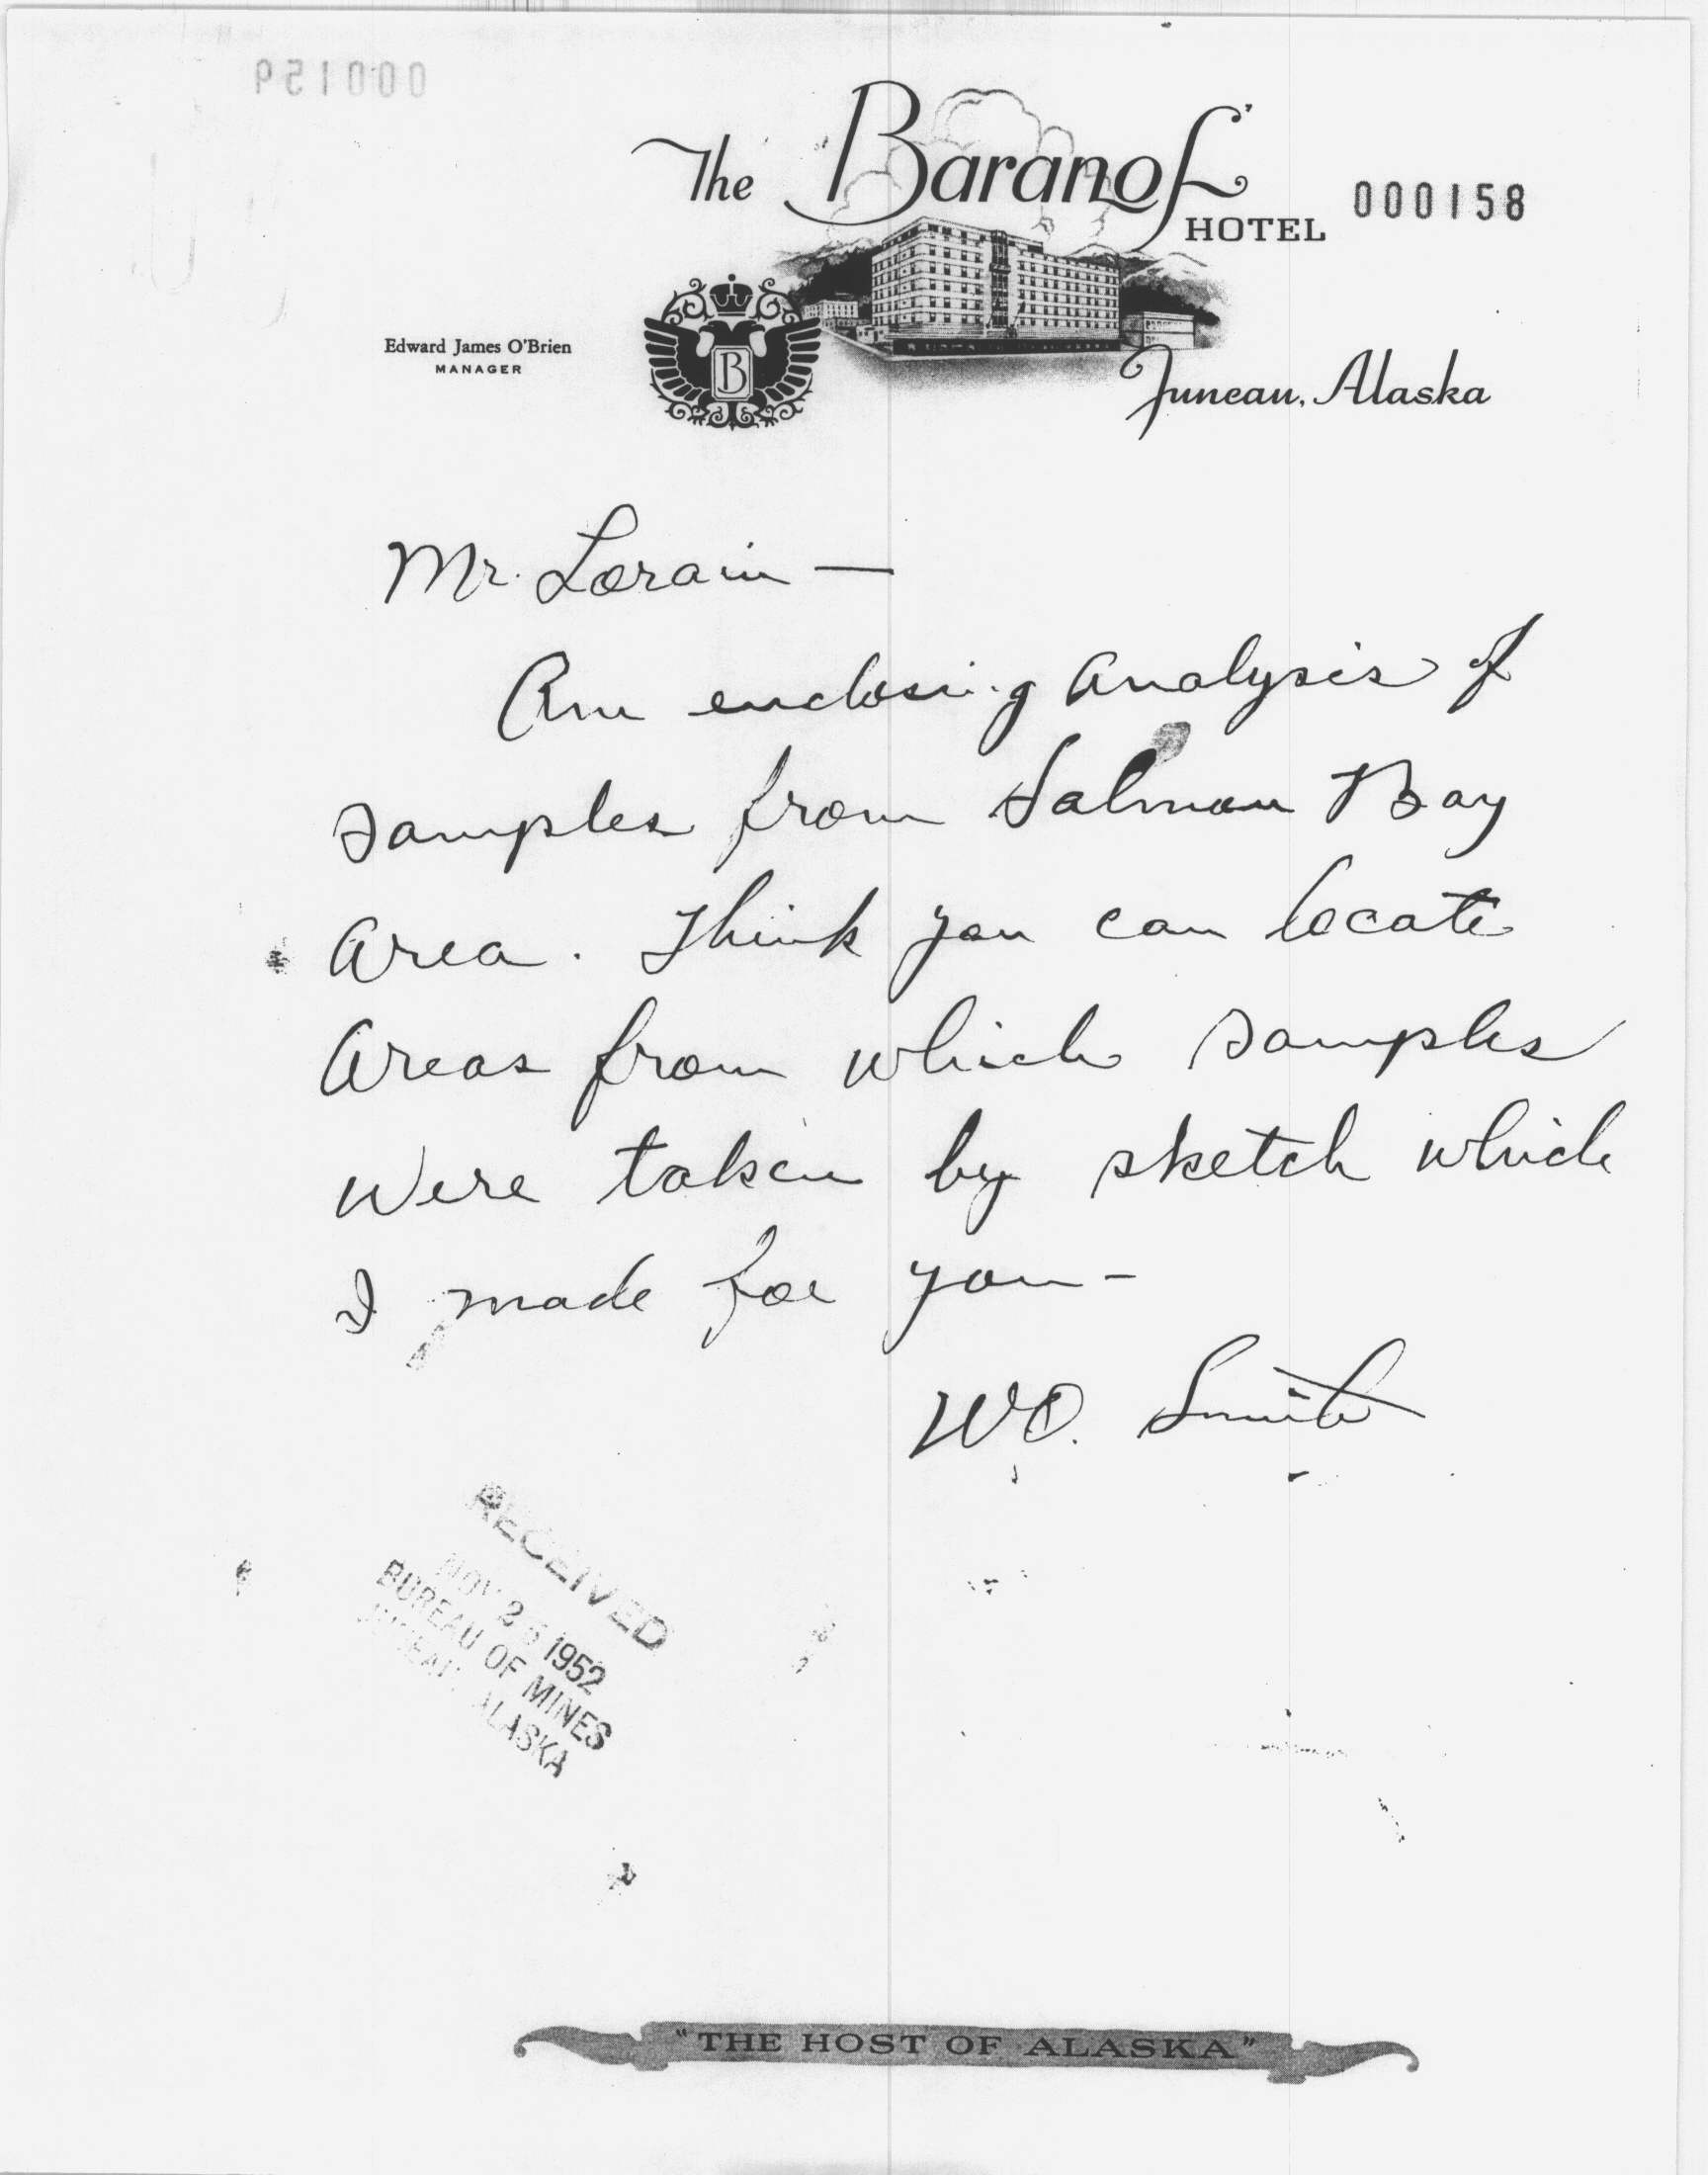 000159
The Baranof
HOTEL
000158
Edward James O'Brien
MANAGER
B
Juneau, Alaska
Mr. Lorain —
Am enclosing analysis of
samples from Salmon Bay
Area. Think you can locate
Areas from which samples
were taken by sketch which
I made for you -
W.O. Smith
RECEIVED
NOV 2 1952
BUREAU OF MINES
JUNEAU, ALASKA
"THE HOST OF ALASKA"